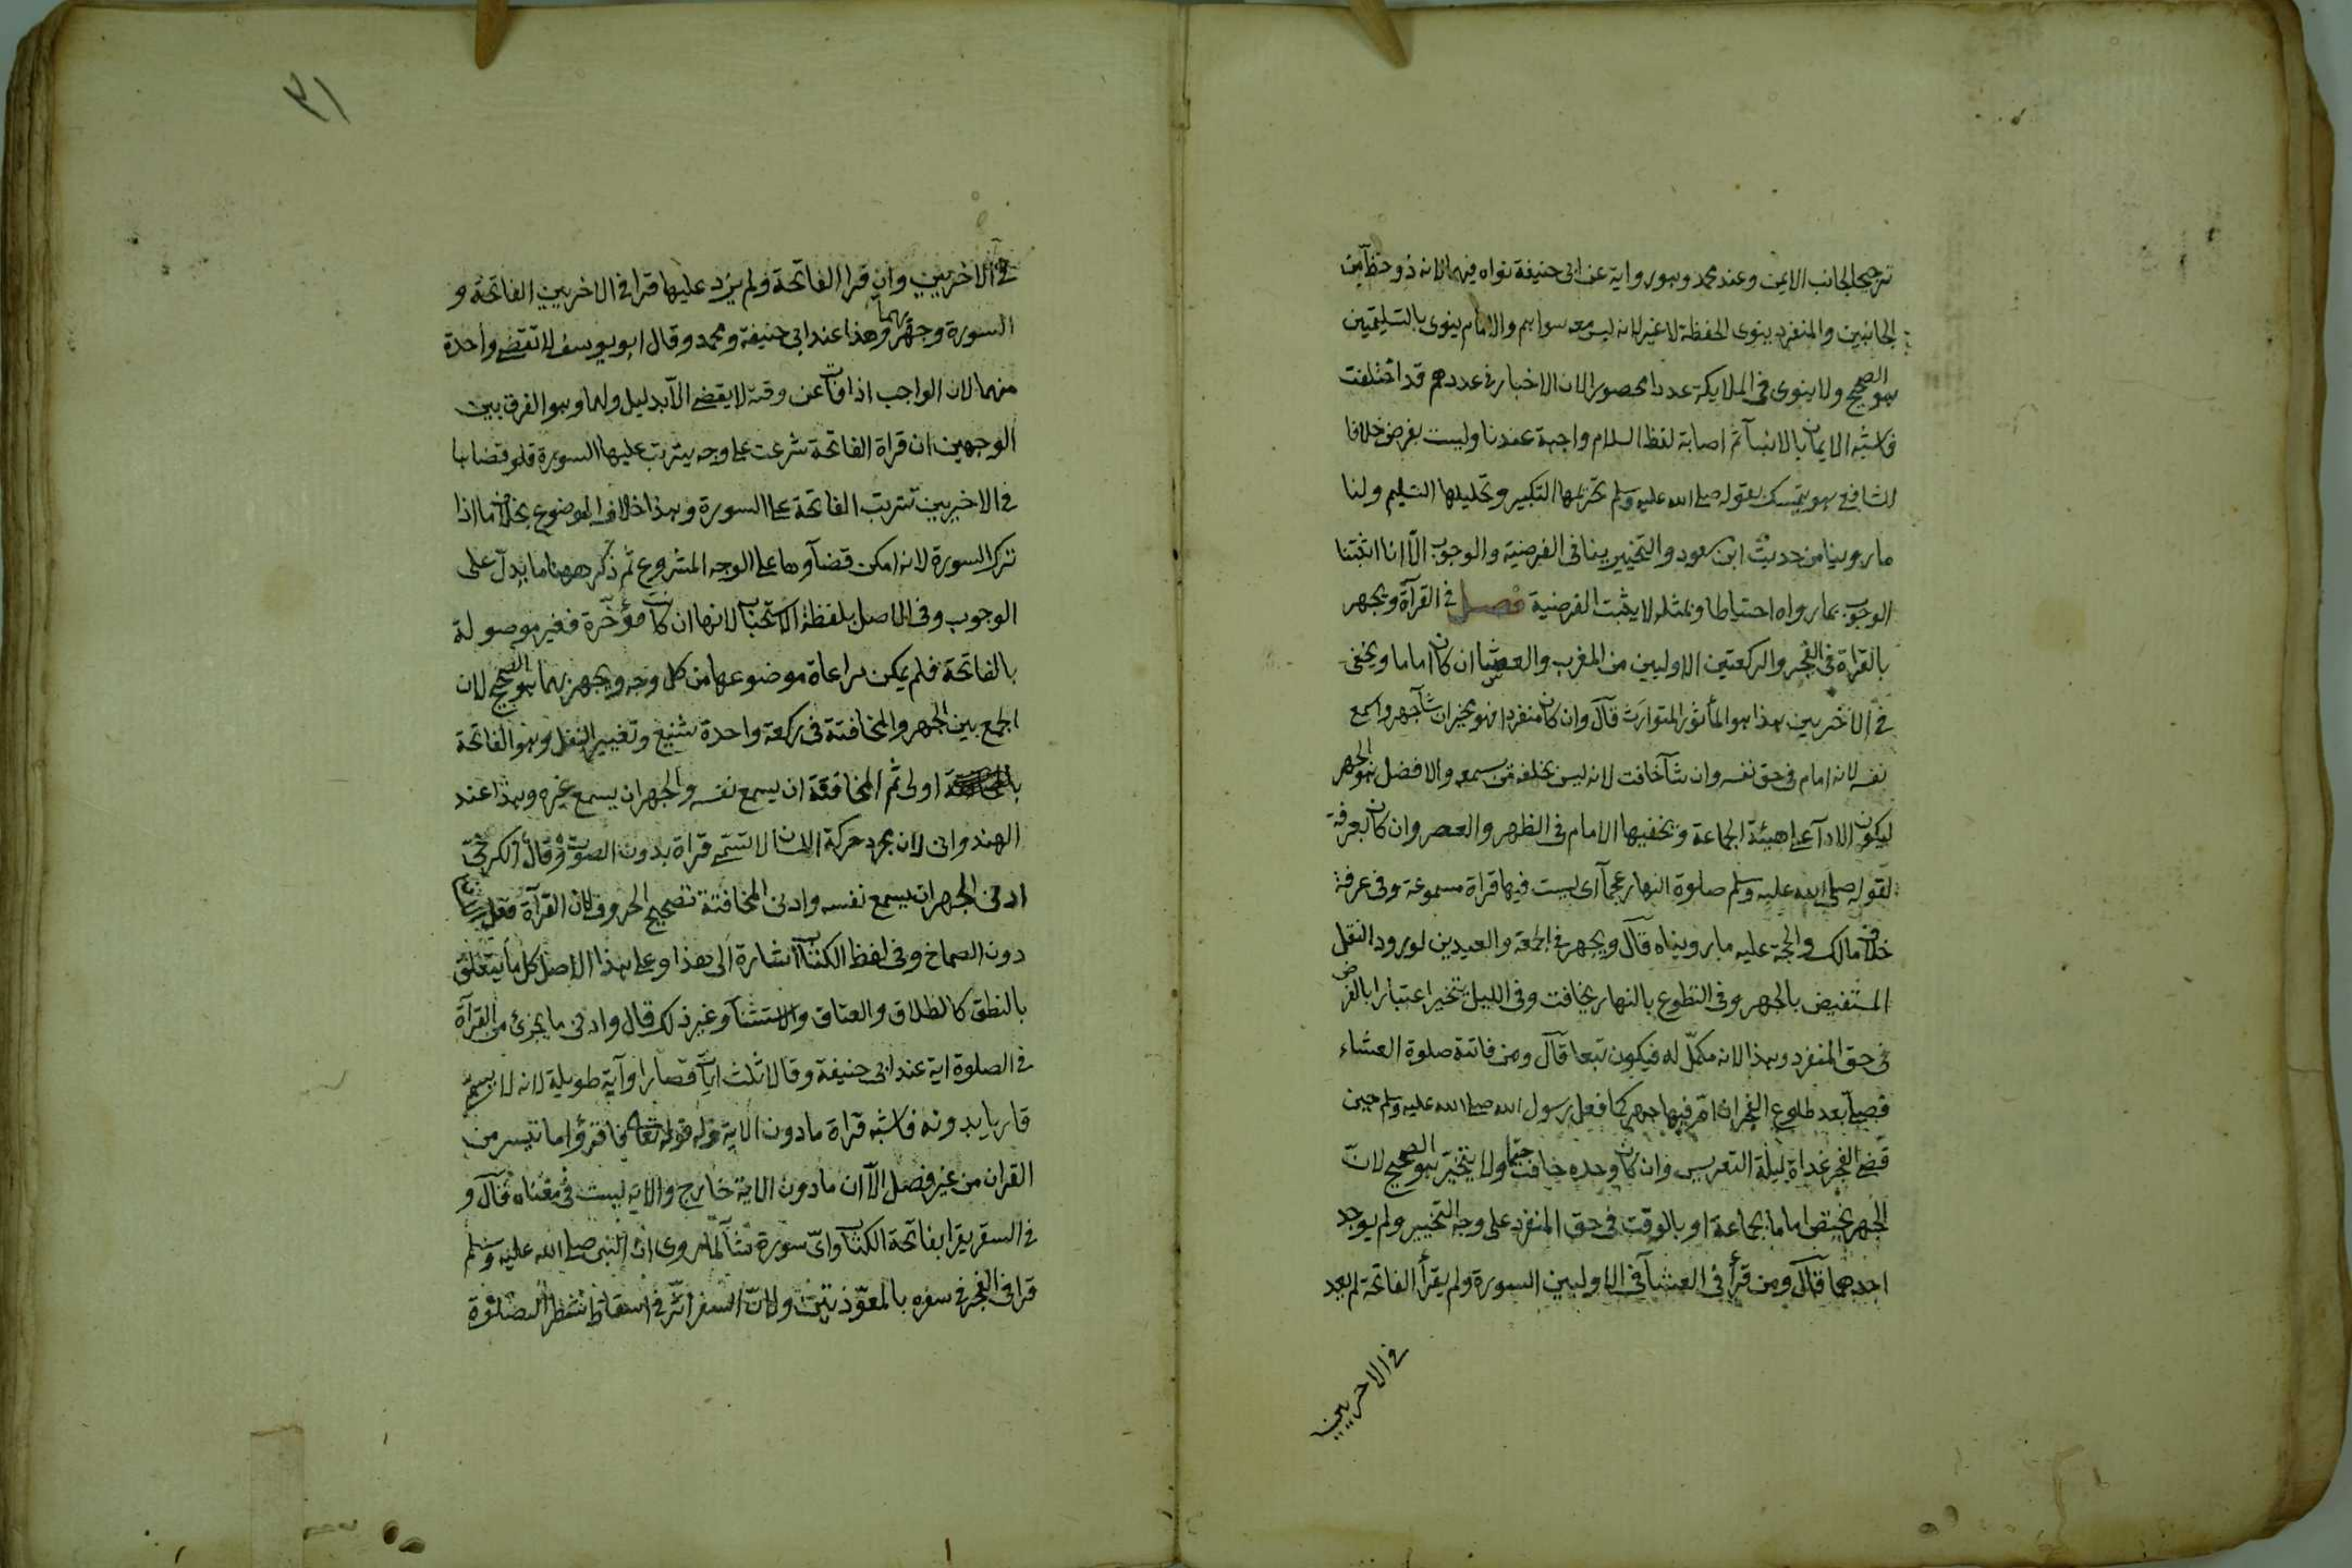 ترجيحا لجانب الايمن وعند محمد وهو رواية عن ابى حنيفة نواه فيهما لانه ذو حظ من
الجانبين والمنفرد ينوى الحفظة لا غير لانه ليس معه سواهم والامام ينوى بالتسليمتين
هو الصحيح ولا ينوى فى الملايكة عددا محصورا لان الاخبار فى عددهم قد اختلفت
فاشبه الايمان بالانبيآ ثم اصابة لفظ السلام واجبة عندنا وليست بفرض خلافا
للشافعى هو يتمسك بقوله صلى الله عليه وسلم تحريمها التكبير وتحليلها التسليم ولنا
ما روينا من حديث ابن مسعود والتخيير ينافى الفرضية والوجوب الّا انا اثبتنا
الوجوب بما رواه احتياطا وبمثله لا يثبت الفرضية فصل فى القرآة ويجهر
بالقراة فى الفجر والركعتين الاوليين من المغرب والعشا ان كان اماما ويخفى
فى الاخريين هذا هو المأثور المتوارث قال وان كان منفردا فهو مخير ان شآ جهر واسمع
نفسه لانه امام فى حق نفسه وان شآ خافت لانه ليس خلفه من يسمعه والافضل هو الجهر
ليكون الادآ على هيئة الجماعة ويخفيها الامام فى الظهر والعصر وان كان بعرفة
لقوله صلى الله عليه وسلم صلوة النهار عجمآ اى ليست فيها قراة مسموعة وفى عرفة
خلاف مالك والحجة عليه ما رويناه قال ويجهر فى الجمعة والعيدين لورود النقل
المستفيض بالجهر وفى التطوع بالنهار يخافت وفى الليل يتخير اعتبارا بالفرض
فى حق المنفرد وهذا لانه مكمّل له فيكون تبعا قال ومن فاتته صلوة العشاء
فصلّيها بعد طلوع الفجر ان امّ فيها جهر كما فعل رسول الله صلى الله عليه وسلم حين
قضى الفجر غداة ليلة التعريس وان كان وحده خافت حتما ولا يتخير هو الصحيح لانّ
الجهر يختص اما بالجماعة او بالوقت فى حق المنفرد على وجه التخيير ولم يوجد
احدهما قال ومن قرأ فى العشآ فى الاوليين السورة ولم يقرأ الفاتحة لم يعد
فى الاخريين
٣١
فى الاخريين وان قرا الفاتحة ولم يزد عليها قرا فى الاخريين الفاتحة و
السورة وجهر بهما وهذا عند ابى حنيفة ومحمد وقال ابو يوسف لا تقضى واحدة
منهما لان الواجب اذا فات عن وقته لا يقضى الّا بدليل ولهما وهو الفرق بين
الوجهين ان قراة الفاتحة شرعت على وجه يترتب عليها السورة فلو قضاها
فى الاخريين تترتب الفاتحة على السورة وهذا خلاف الموضوع بخلاف ما اذا
ترك السورة لانه امكن قضآوها على الوجه المشروع ثم ذكر ههنا ما يدل على
الوجوب وفى الاصل بلفظة الاستحباب لانها ان كانت مؤخرة فغير موصولة
بالفاتحة فلم يمكن مراعاة موضوعها من كل وجه ويجهر بهما هو الصحيح لان
الجمع بين الجهر والمخافتة فى ركعة واحدة شنيع وتغيير النفل وهو الفاتحة
اولى ثم المخافتة ان يسمع نفسه والجهر ان يسمع غيره وهذا عند
الهندوانى لان مجرد حركة اللسان لا تسمى قراة بدون الصوت وقال الكرخى
ادنى الجهر ان يسمع نفسه وادنى المخافتة تصحيح الحروف لان القرآة فعل اللسان
دون الصماخ وفى لفظ الكتاب اشارة الى هذا وعلى هذا الاصل كل ما يتعلق
بالنطق كالطلاق والعتاق والاستثنآ وغير ذلك قال وادنى ما يجزئ من القرآة
فى الصلوة اية عند ابى حنيفة وقالا ثلث ايات قصار او آية طويلة لانه لا يسمى
قاريا بدونه فاشبه قراة ما دون الاية وله قوله تعالى فاقرؤا ما تيسر من
القران من غير فصل الّا ان ما دون الاية خارج والاية ليست فى معناه قال و
فى السفر يقرا بفاتحة الكتاب واىّ سورة شآ لما روى ان النبى صلى الله عليه وسلم
قرا فى الفجر فى سفره بالمعوّذتين ولانّ السفر اثّر فى اسقاط شطر الصلوة